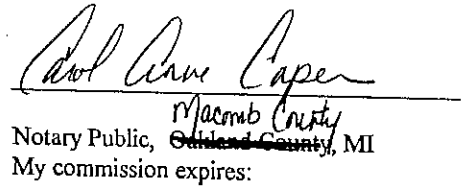 Carol Anne Caper
Macomb County
Notary Public, Oakland County, MI
My commission expires: